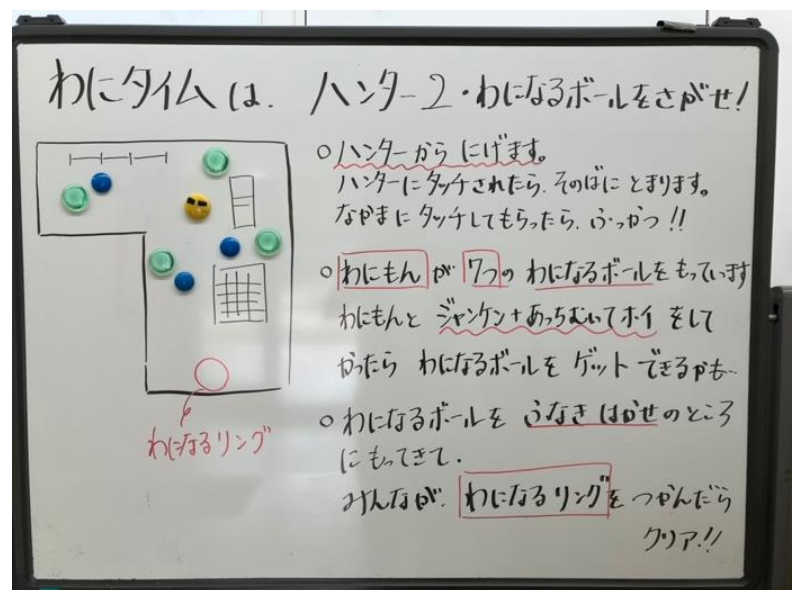 わにタイムは、ハンター2・わになるボールをさがせ!
○ハンターから にげます。
ハンターにタッチされたら、そのばに とまります。
なかまに タッチしてもらったら、ふっかつ!!
○わにもんが 7つの わになるボールをもっています
わにもんと ジャンケン+あっちむいてホイ をして
かったら わになるボールを ゲット できるかも…
○わになるボールを ふなき はかせのところ
にもってきて、
みんなが、わになるリングを つかんだら
クリア!!
わになるリング